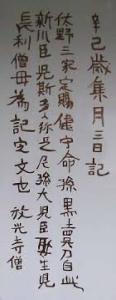 辛己歳集月三日記
佐野三家定賜健守命孫黒賣刀自此
新川臣児斯多々弥足尼孫大児臣娶生児
長利僧母為記定文也　放光寺僧